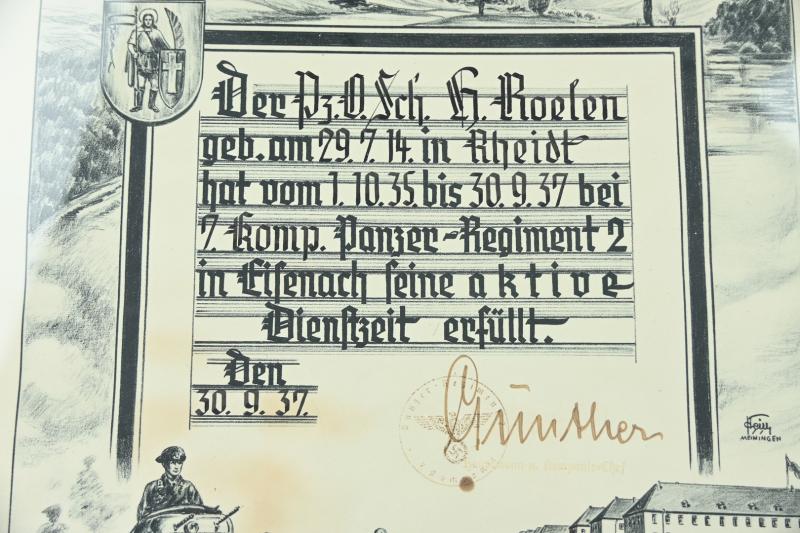 Der Pz.O.Sch. H. Roelen
geb. am 29.7.14. in Rheidt
hat vom 1.10.35. bis 30.9.37. bei
7. Komp. Panzer-Regiment 2
in Eisenach seine aktive
Dienstzeit erfüllt.
Den
30.9.37.
Günther
Hauptmann u. Kompanie-Chef
MEININGEN